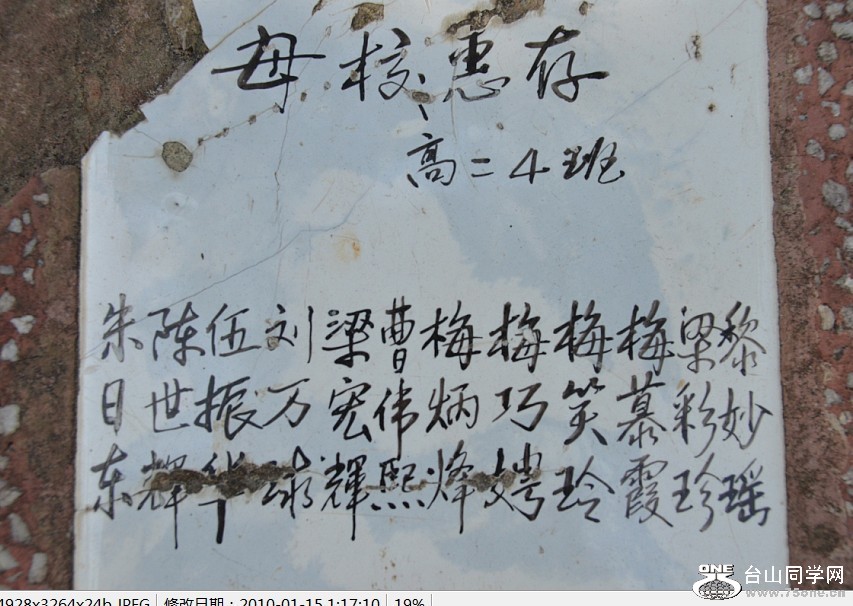 母校惠存
高二4班
朱 陈 伍 刘 梁 曹 梅 梅 梅 梅 梁 黎
日 世 振 万 宏 伟 炳 巧 笑 慕 彩 妙
东 辉 华 球 輝 熙 烽 娉 玲 霞 珍 瑶
ONE 台山同学网
www.75one.cn
4928x3264x24b JPEG 修改日期：2010-01-15 1:17:10 19%